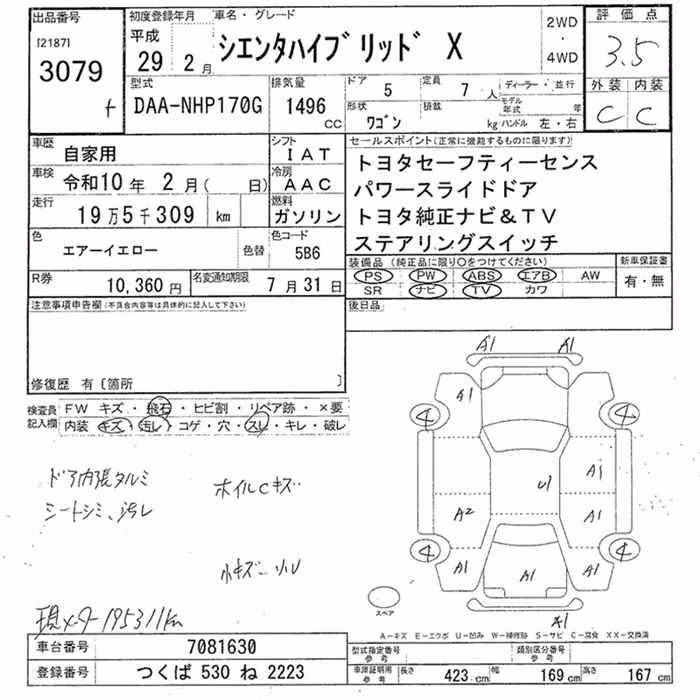 出品番号
[2187]
3079
初度登録年月
平成
29年 2月
車名・グレード
シエンタハイブリッド X
2WD
・
4WD
評価点
3.5
外装 内装
C C
型式
DAA-NHP170G
排気量
1496
CC
ドア
5
定員
7 人
ディーラー・並行
モデル年式 年
形状
ワゴン
積載
kg
ハンドル 左・右
車歴
自家用
シフト
IAT
車検
令和10年 2月( 日)
冷房
AAC
走行
19万5千309 km
燃料
ガソリン
色
エアーイエロー
色替
色コード
5B6
R券
10,360円
名変通知期限
7月31日
セールスポイント(正常に機能するものに限ります)
トヨタセーフティーセンス
パワースライドドア
トヨタ純正ナビ&TV
ステアリングスイッチ
装備品 (純正品に限り○をつけてください)
PS PW ABS エアB AW
SR ナビ TV カワ
新車保証書
有・無
後日品
注意事項申告欄(不具合内容等は具体的に記入して下さい)
修復歴 有〔箇所 〕
検査員記入欄
FW キズ・飛石・ヒビ割・リペア跡・×要
内装 キズ・汚レ・コゲ・穴・スレ・キレ・破レ
ドア内張タルミ
シートシミ、汚レ
ホイルCキズ
小キズ
現メータ 195311km
A1 A1
A1
4 4
A1
U1
A2 A1
4 4
A1 A1 A1
A1
スペア
A-キズ E-エクボ U-凹み W-補修跡 S-サビ C-腐食 XX-交換済
車台番号
7081630
登録番号
つくば 530 ね 2223
型式指定番号
参考
類別区分番号
参考
車庫証明用
参考
長さ 423 cm 幅 169 cm 高さ 167 cm